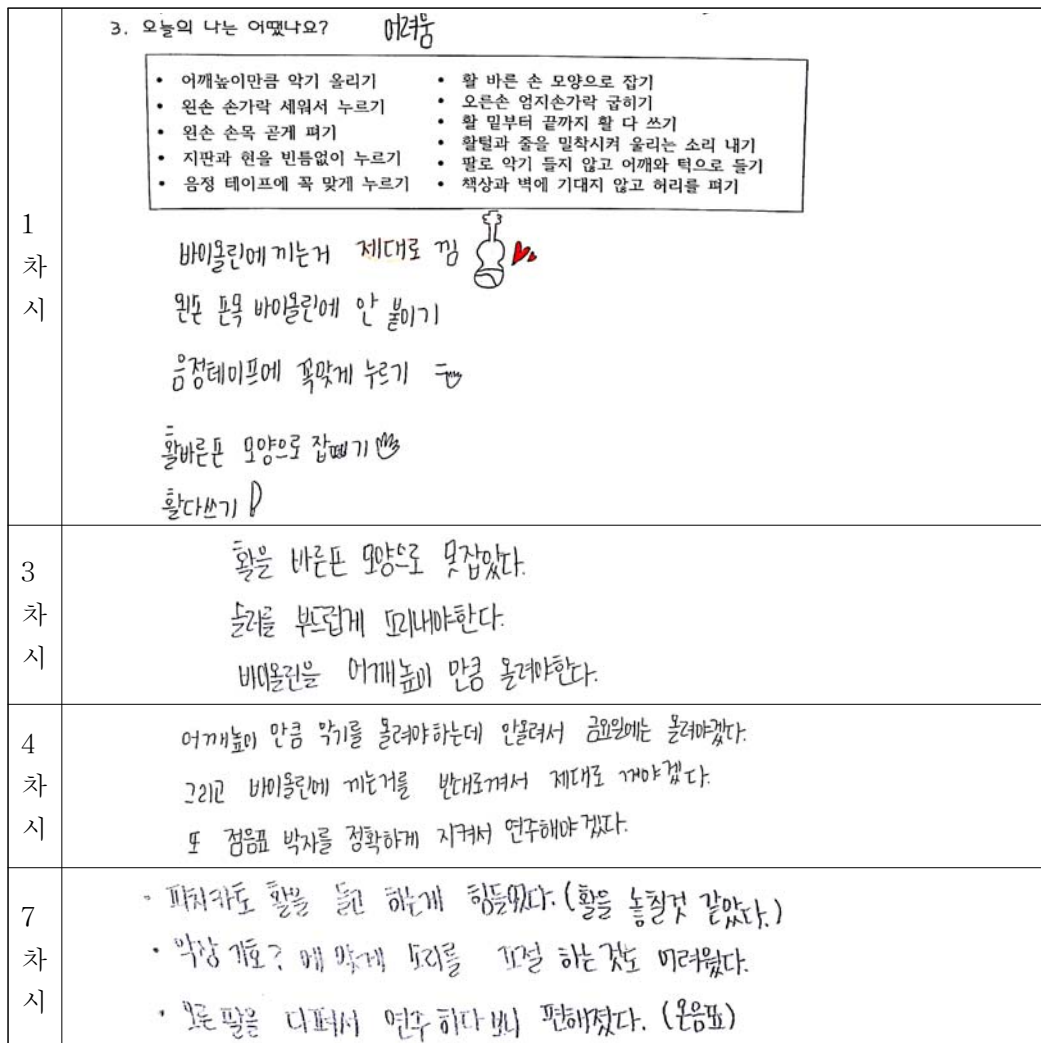 3. 오늘의 나는 어땠나요? 어려움
• 어깨높이만큼 악기 올리기
• 왼손 손가락 세워서 누르기
• 왼손 손목 곧게 펴기
• 지판과 현을 빈틈없이 누르기
• 음정 테이프에 꼭 맞게 누르기
• 활 바른 손 모양으로 잡기
• 오른손 엄지손가락 굽히기
• 활 밑부터 끝까지 활 다 쓰기
• 활털과 줄을 밀착시켜 울리는 소리 내기
• 팔로 악기 들지 않고 어깨와 턱으로 들기
• 책상과 벽에 기대지 않고 허리를 펴기
1
차
시
바이올린에 끼는거 제대로 낌
왼손 손목 바이올린에 안 붙이기
음정테이프에 꼭맞게 누르기
활바른손 모양으로 잡기
활다쓰기
3
차
시
활을 바른손 모양으로 못잡았다.
부드럽게 소리내야한다.
바이올린을 어깨높이 만큼 올려야한다.
4
차
시
어깨높이 만큼 악기를 올려야하는데 안올려서 금요일에는 올려야겠다.
그리고 바이올린에 끼는거를 반대로껴서 제대로 껴야겠다.
또 점음표 박자를 정확하게 지켜서 연주해야겠다.
7
차
시
· 피치카토 활을 들고 하는게 힘들었다. (활을 놓칠것 같았다.)
· 악상 기호? 에 맞게 소리를 조절 하는것도 어려웠다.
· 오른팔을 다펴서 연주 하다보니 편해졌다. (온음표)